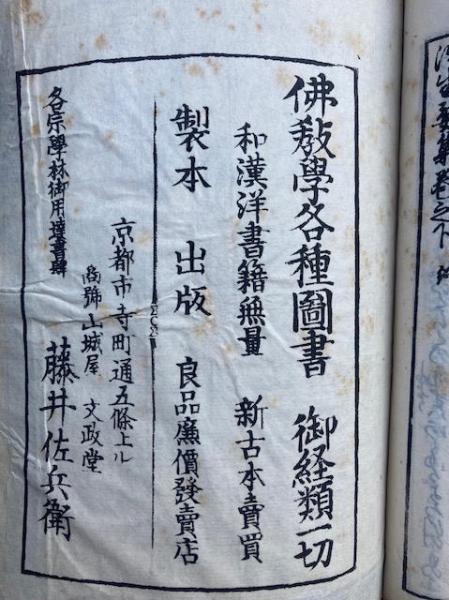 佛教學各種圖書　御経類一切
和漢洋書籍無量　新古本賣買
製本　出版　良品廉價發賣店
京都市寺町通五條上ル
商號山城屋　文政堂
各宗學林御用達書肆　藤井佐兵衛